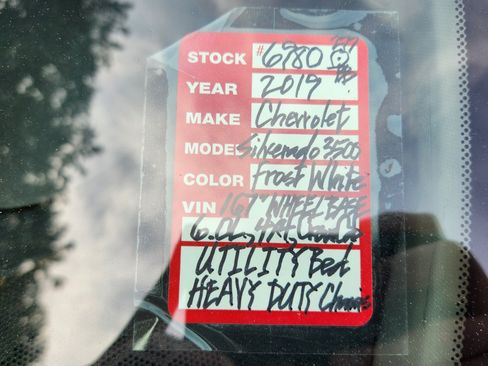 STOCK #6980
YEAR 2019
MAKE Chevrolet
MODEL Silverado 3500
COLOR Frost White
VIN 167" WHEEL BASE
6.0L, 4x4,
UTILITY Bed
HEAVY DUTY Chassis